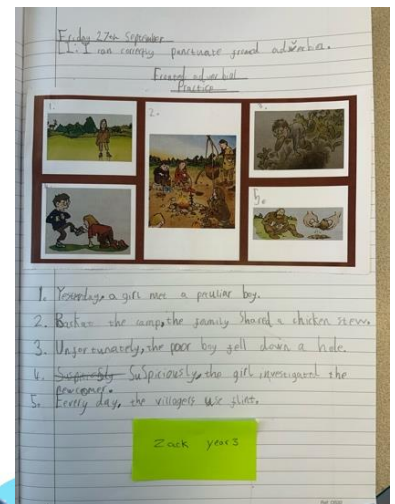 Friday 27th September
LI: I can correctly punctuate fronted adverbials.
Fronted adverbial
Practice
1.
2.
3.
5.
1. Yesterday, a girl met a peculiar boy.
2. Back at the camp, the family shared a chicken stew.
3. Unfortunately, the poor boy fell down a hole.
4. Suspiciously, the girl investigated the
newcomer.
5. Every day, the villagers use flint.
Zack year 3